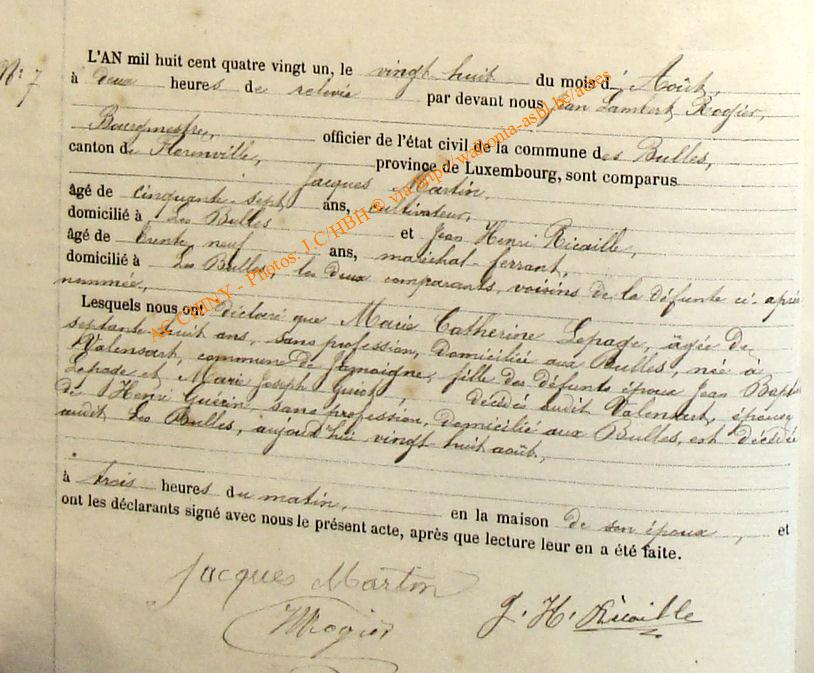 N° 7
L'AN mil huit cent quatre vingt un, le vingt huit du mois d' Août,
à deux heures de relevée par devant nous Jean Lambert Rogier,
Bourgmestre, officier de l'état civil de la commune des Bulles,
canton de Florenville, province de Luxembourg, sont comparus
Jacques Martin,
âgé de cinquante-sept ans, cultivateur,
domicilié à Les Bulles et Jean Henri Ricaille,
âgé de trente neuf ans, maréchal-ferrant,
domicilié à Les Bulles, les deux comparants, voisins de la défunte ci-après
nommée,
Lesquels nous ont déclaré que Marie Catherine Lepage, âgée de
septante huit ans, sans profession, domiciliée aux Bulles, née à
Valensart, commune de Jamoigne, fille des défunts époux Jean Bapt
Lepage et Marie Joseph décédés audit Valensart, épouse
de Henri Guérin, sans profession, domicilié aux Bulles, est décédée
audit Les Bulles, aujourd'hui vingt-huit août,
à trois heures du matin, en la maison de son époux, et
ont les déclarants signé avec nous le présent acte, après que lecture leur en a été faite.
Jacques Martin
Rogier
J. H. Ricaille
AC CHINY - Photos: J C/HBH © via http://wallonia-asbl.be/actes